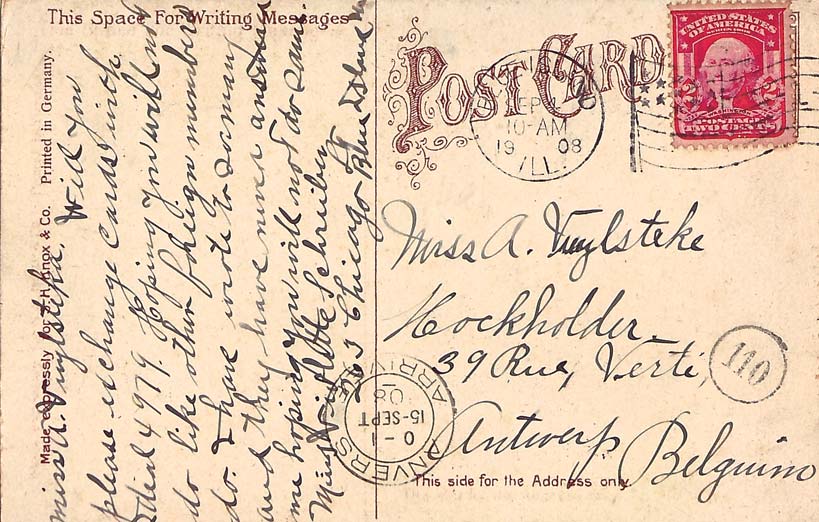 This Space For Writing Messages
Made expressly for J. H. Knox & Co.    Printed in Germany.
Miss A. Vuylsteke, Will you
please exchange cards with
Ideal 4979. Hoping you will not
do like other foreign members
do. I have wrote to so many
and they have never answered
me hoping you will not do same.
Miss Violette Schreiber
263 Chicago
Blue Island
POST CARD
UNITED STATES OF AMERICA
WASHINGTON
POSTAGE
TWO CENTS
2 2
SEP
10-AM
1908
ILL.
Miss A. Vuylsteke
Hockholder
39 Rue, Verte,
110
Antwerp
Belguim
ANVERS
0-1
15-SEPT
08
ARRIVÉE
This side for the Address only.